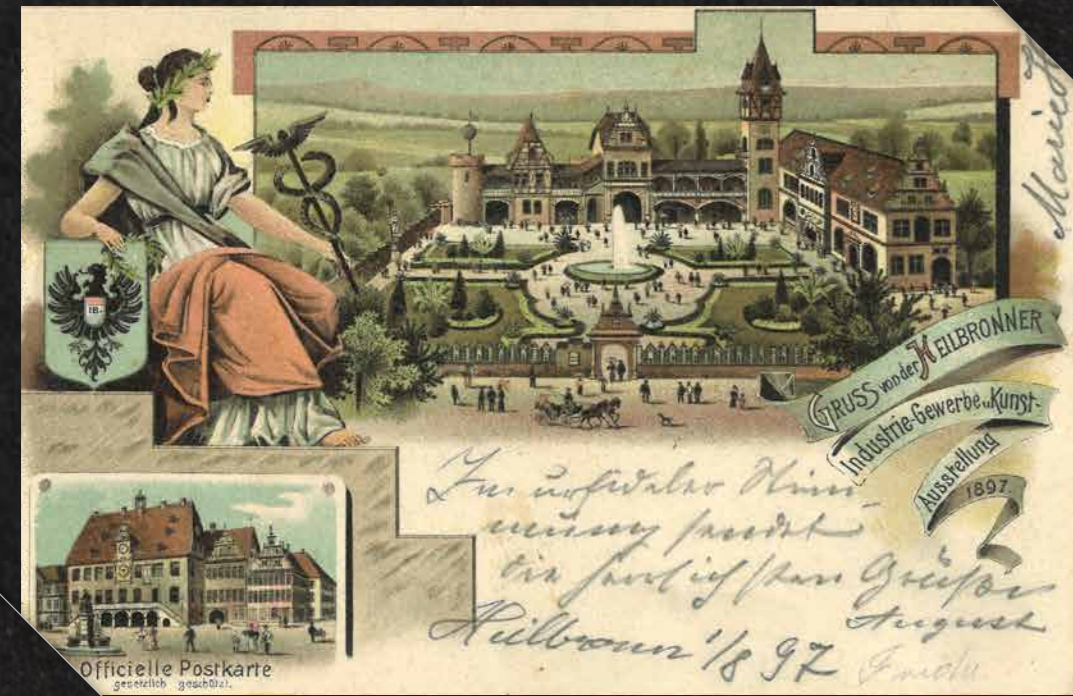 GRUSS von der HEILBRONNER
Industrie-Gewerbe u. Kunst-
Ausstellung
1897.
HB.
In urfideler Stim-
mung sendet
die herzlichsten Grüße
August
Heilbronn 1/8 97
Officielle Postkarte
gesetzlich geschützt.